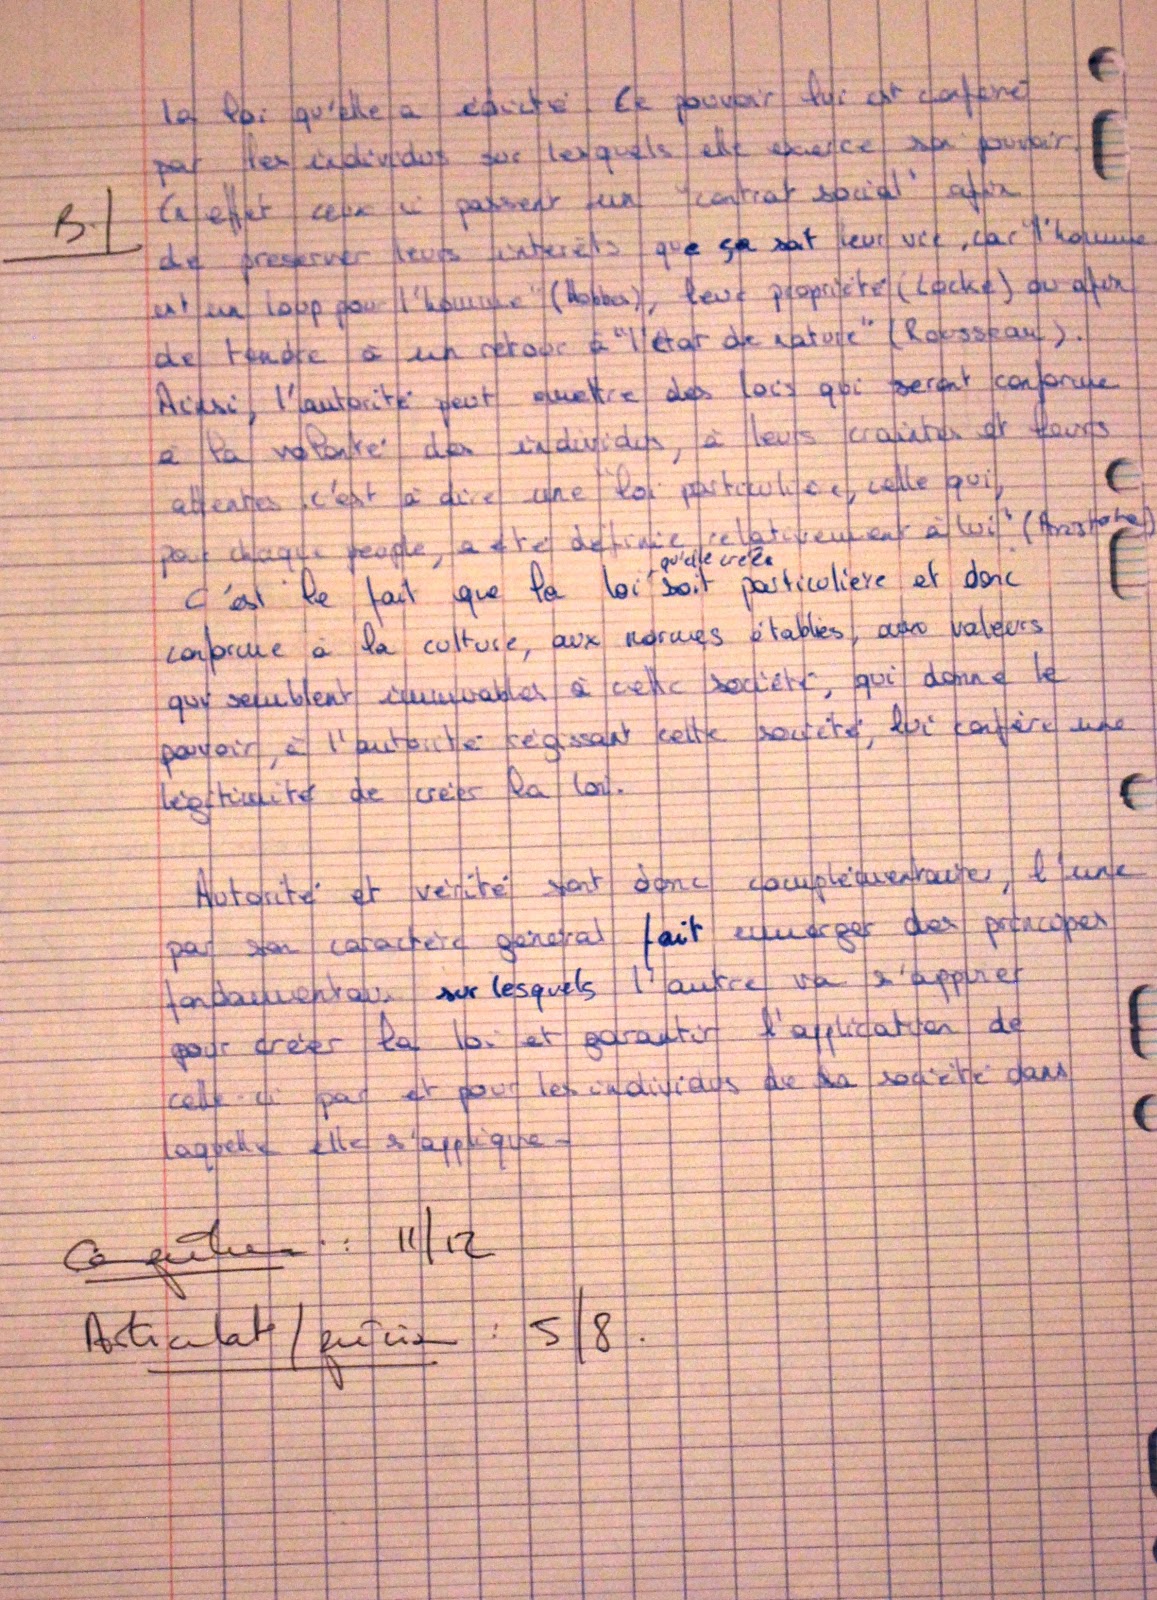 la loi qu'elle a édicté. Ce pouvoir lui est conféré
par les individus sur lesquels elle exerce son pouvoir.
B.
En effet ceux ci passent un "contrat social" afin
de préserver leurs intérêts que ça soit leur vie, car "l'homme
est un loup pour l'homme" (Hobbes), leur propriété (Locke) ou afin
de tendre à un retour à "l'état de nature" (Rousseau).
Ainsi, l'autorité peut émettre des lois qui seront conforme
à la volonté des individus, à leurs craintes et leurs
attentes, c'est à dire une "loi particulière, celle qui,
pour chaque peuple, a été définie relativement à lui" (Aristote)
qu'elle créée
C'est le fait que la loi soit particulière et donc
conforme à la culture, aux normes établies, aux valeurs
qui semblent immuables à cette société, qui donne le
pouvoir, à l'autorité régissant cette société, lui confère une
légitimité de créer la loi.
Autorité et vérité sont donc complémentaires, l'une
par son caractère général fait émerger des principes
fondamentaux sur lesquels l'autre va s'appuyer
pour créer la loi et garantir l'application de
celle-ci par et pour les individus de la société dans
laquelle elle s'applique.
: 11/12
Articulat° / précision : 5/8.